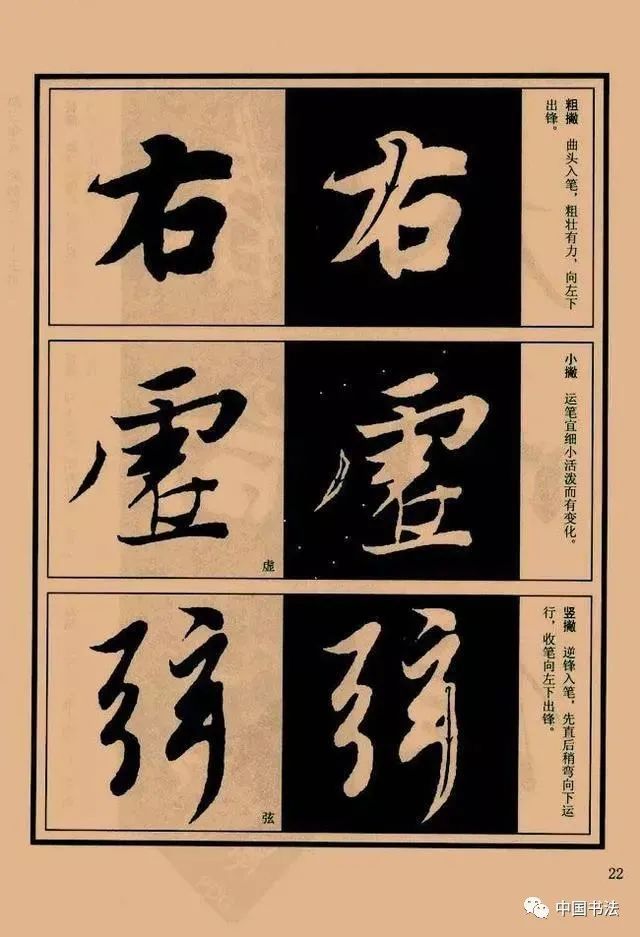 粗撇　曲头入笔，粗壮有力，向左下
出锋。
右
右
小撇　运笔宜细小活泼而有变化。
虚
虚
虚
竖撇　逆锋入笔，先直后稍弯向下运
行，收笔向左下出锋。
弦
弦
弦
22
中国书法